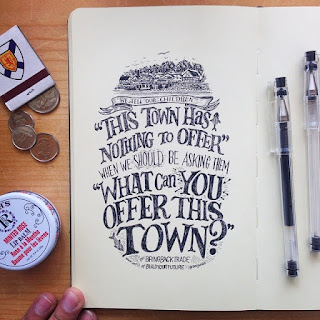 WE TELL OUR CHILDREN
"THIS TOWN HAS
NOTHING TO OFFER"
WHEN WE SHOULD BE ASKING THEM
"WHAT CAN YOU
OFFER THIS
TOWN?"
#BRINGBACKTRADE
#BUILDYOURFUTURE
MINTED ROSE
LIP BALM